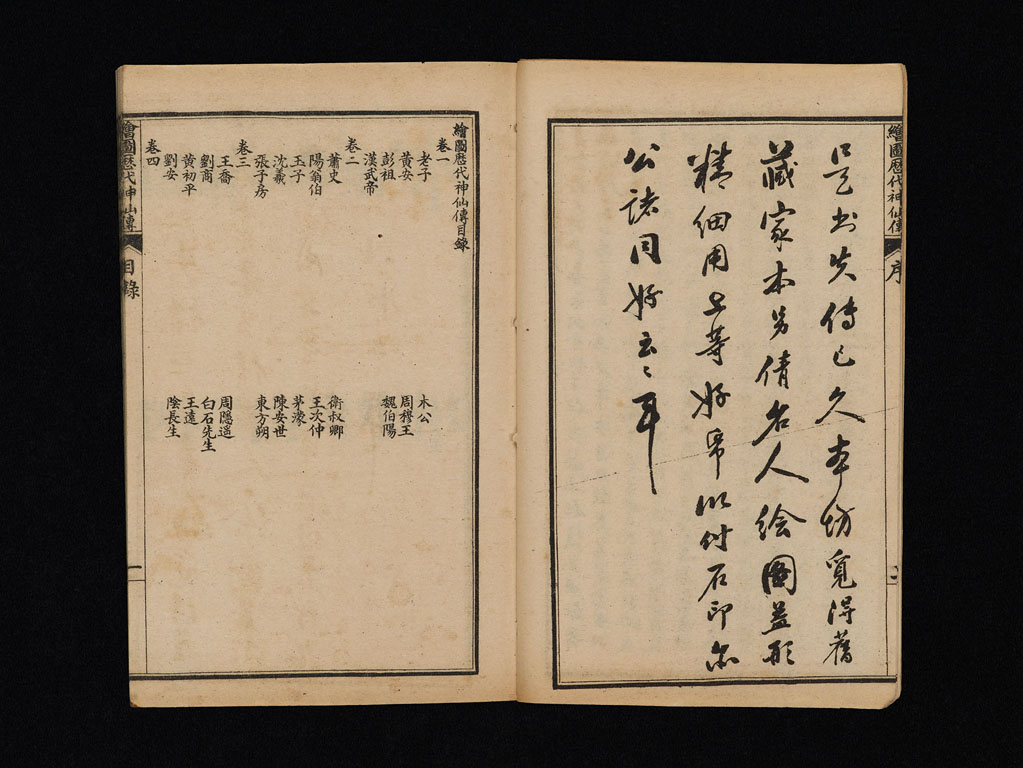 繪圖歷代神仙傳
序
是書失傳已久本坊覓得舊
藏家本另倩名人繪圖益形
精細用上等好帋以付石印公
諸同好云云耳
繪圖歷代神仙傳目錄
卷一
老子
木公
黃安
周穆王
彭祖
魏伯陽
漢武帝
卷二
蕭史
衛叔卿
陽翁伯
王次仲
玉子
茅濛
沈羲
陳安世
張子房
東方朔
卷三
王喬
周隱遥
劉商
白石先生
黃初平
王遠
劉安
陰長生
卷四
繪圖歷代神仙傳
目錄
一